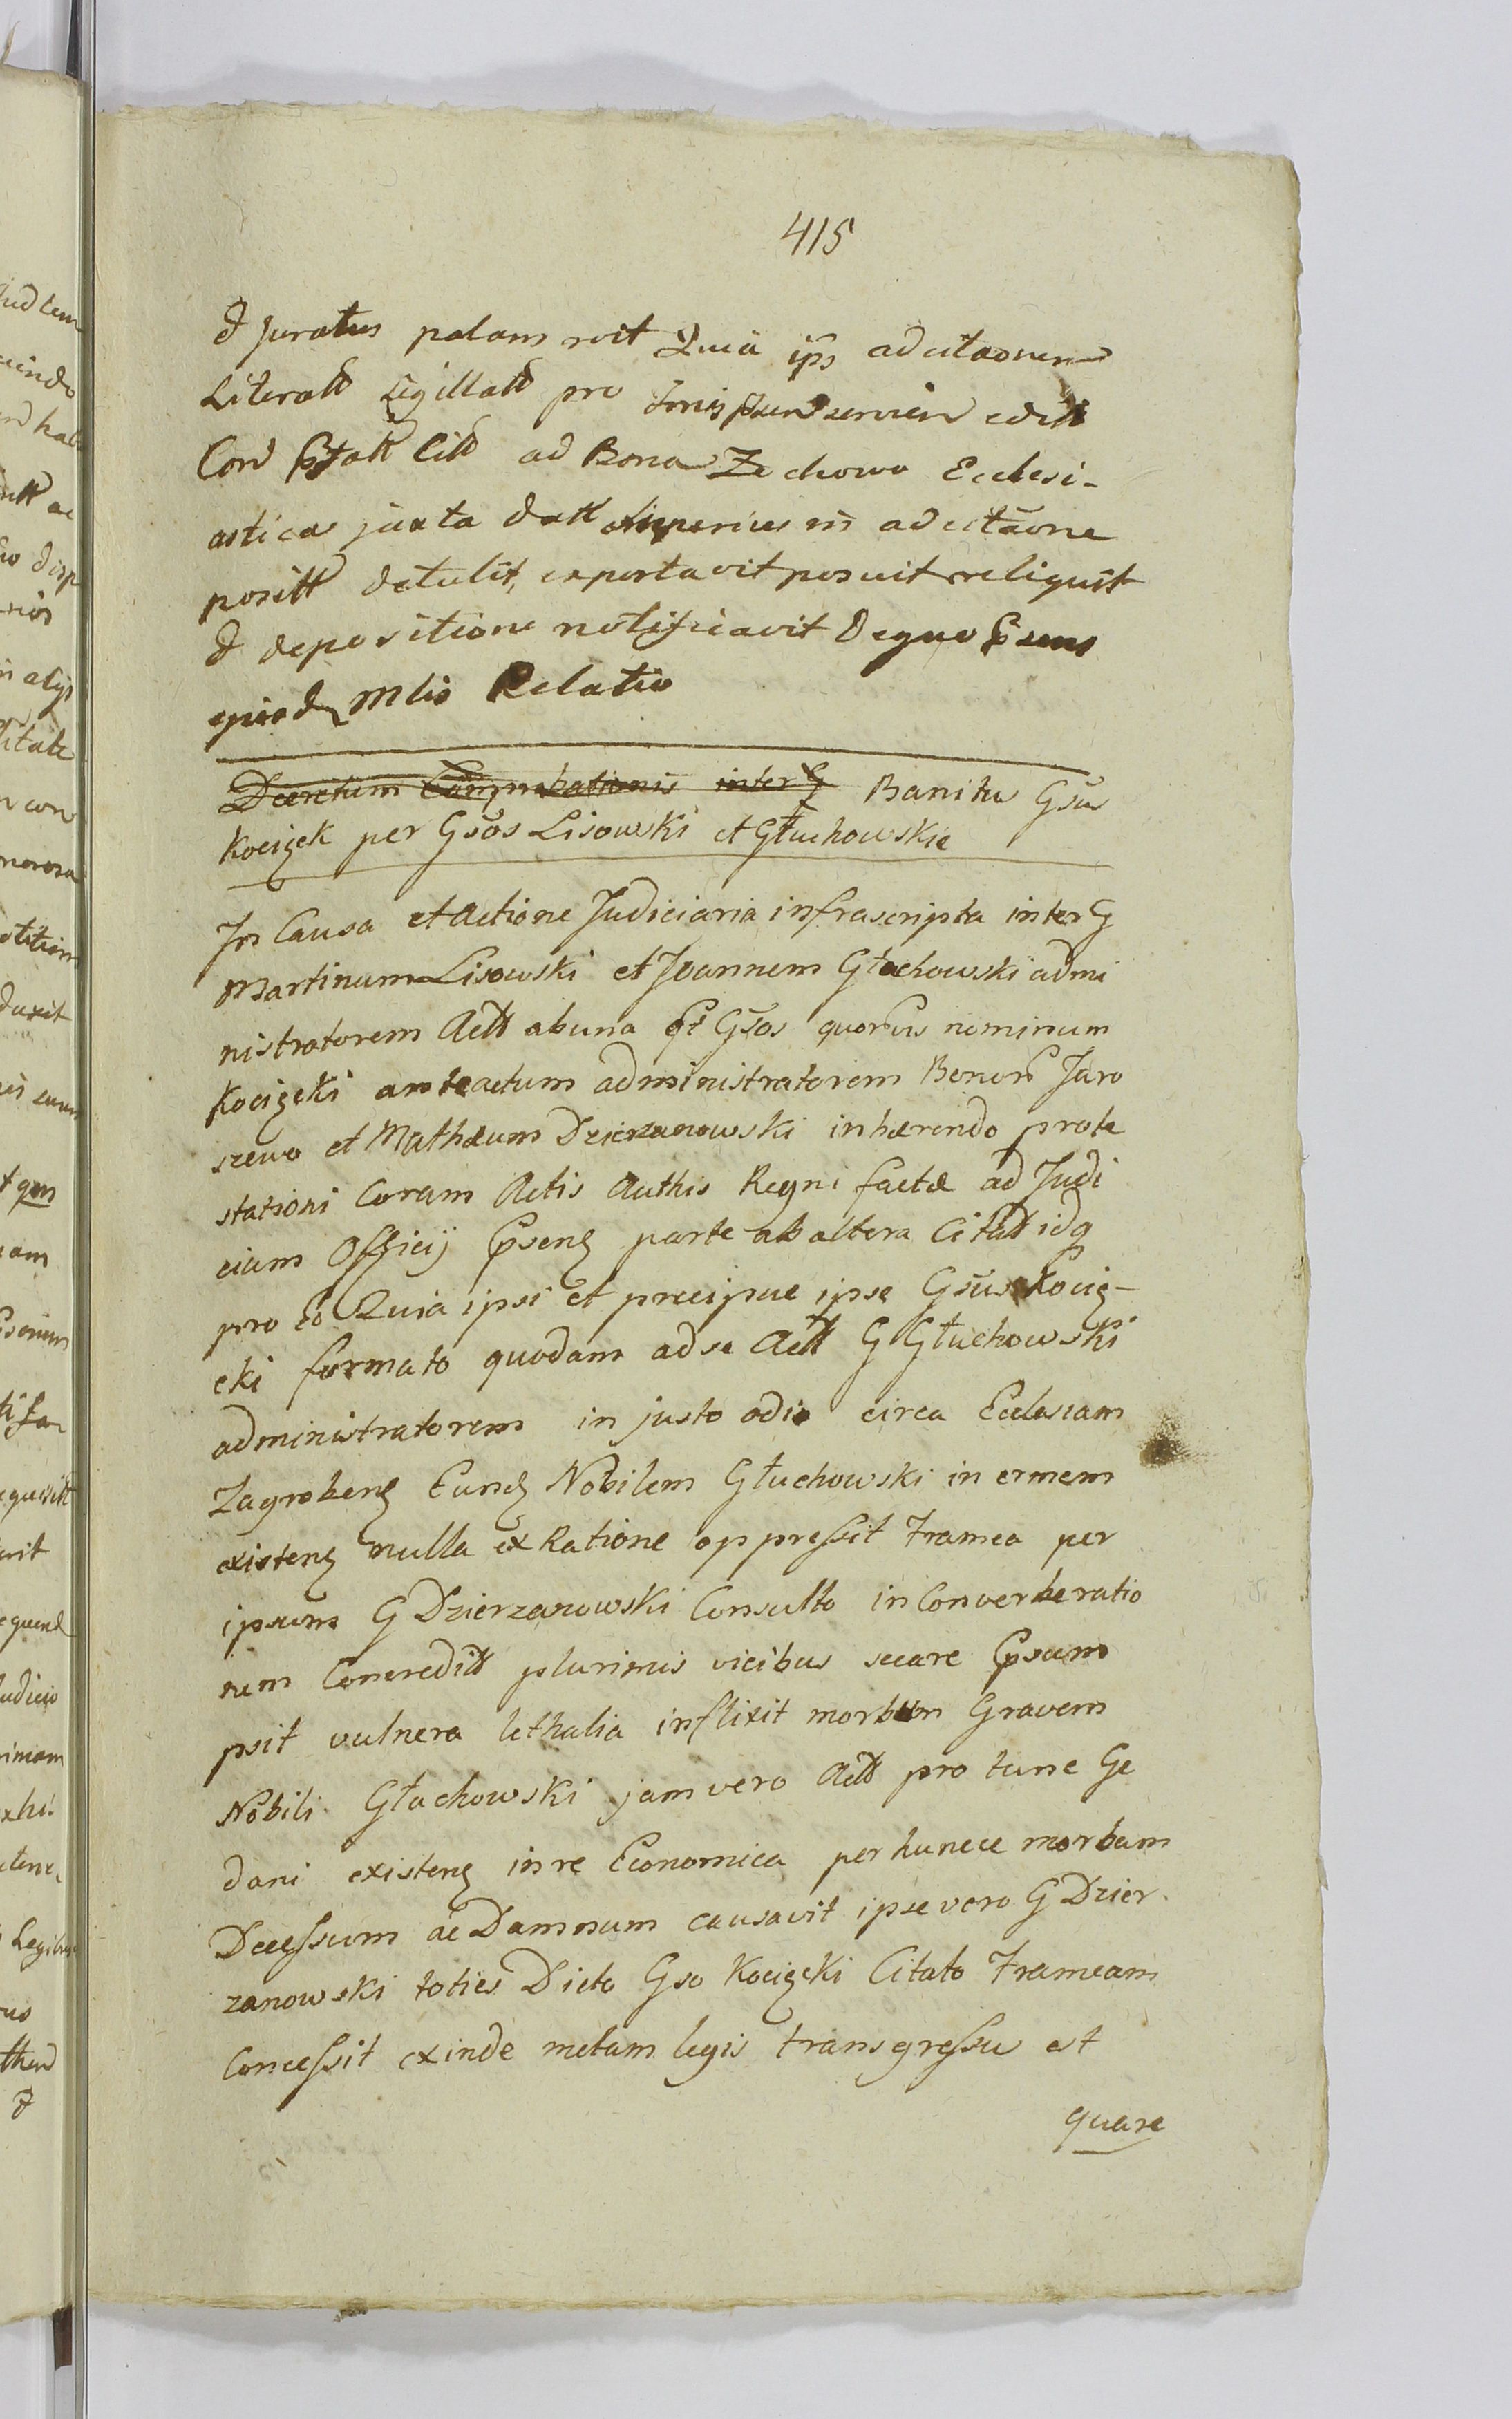 415
& Juratus palam rvit Quia ips adcitaonem
Literatt Sigillatt pro
Cord Ptatt Citt ad Bona Zechowo Ecclesi-
astica juxta datt superius in adcitaone
positt detulit, exportavit posuit reliquit
& depositione notificavit Dequo Psens
ejusd Mlis Relatio
Decretum Comprobationis inter G Banitu Gsus
Kocięck per Gsos Lisowski et Głuchowskie
In Causa et Actione Judiciaria infrascripta inter G
Martinum Lisowski et Joannem Głochowski admi
nistratorem Actt abuna et Gsos quorvis nominum
Kocięcki anteactum administratorem Bonor Jaro
szewo et Mathæum Dzierzanowski inhærendo prote
stationi Coram Actis Authis Regni factæ ad Judi
cium Officij Psenę parte ab altera Citatt idq
pro eo Quia ipsi et præcipue ipse Gsus Kocię-
cki formato quodam adse Actt G Głuchowski
administratorem in justo odio circa Ecclesiam
Zagrobenę Eundę Nobilem Głuchowski in ermem
existenę nulla ex Ratione oppressit Tramea per
ipsum G Dzierzanowski Consulto in Converberatio
nem Concreditt plurimis vicibus secare Psum
psit vulnera lethalia inflixit morbum Gravem
Nobili Głachowski jam vero Actt pro tunc Ge
dani existenę in re Economica per hunece morbum
Decessum ac Damnum causavit ipse vero G Dzier.
zanowski toties Dicto Gso Kocięcki Citato Trameam
Concessit exinde metam legis transgressu est
quare